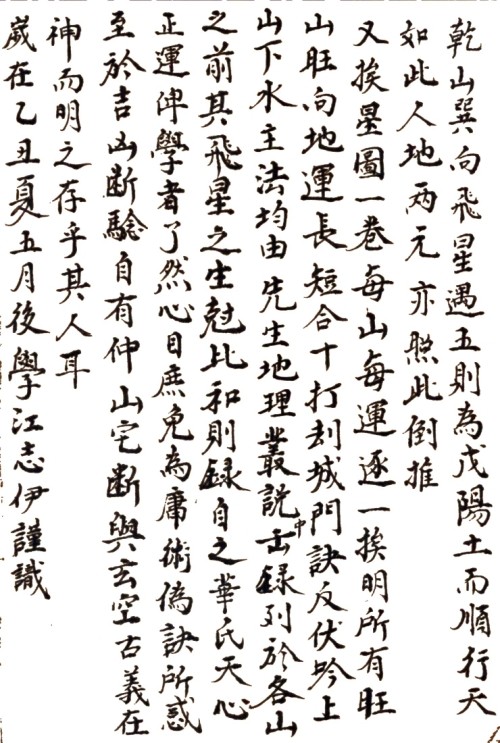 乾山巽向飛星遇五則為戊陽土而順行天
如此人地兩元亦照此倒推
又挨星圖一卷每山每運逐一挨明所有旺
山旺向地運長短合十打刦城門訣反伏吟上
山下水主法均由先生地理叢說中錄列於各山
之前其飛星之生尅比和則錄自之華氏天心
正運俾學者了然心目庶免為庸術偽訣所惑
至於吉凶斷驗自有仲山宅斷與玄空古義在
神而明之存乎其人耳
歲在乙丑夏五月後學江志伊謹識